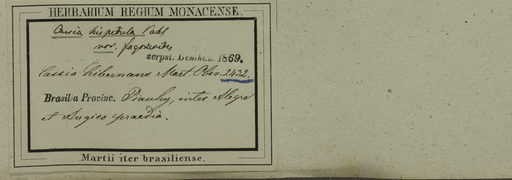 HERBARIUM REGIUM MONACENSE.
Cassia hispidula Vahl
var. fagonioides
scrpsi. Benth. 1869.
Cassia hibernans Mart. Obs. 2432.
Brasilia Provinc. Piauhy, inter Alegre
et Angico praedia.
Martii iter brasiliense.